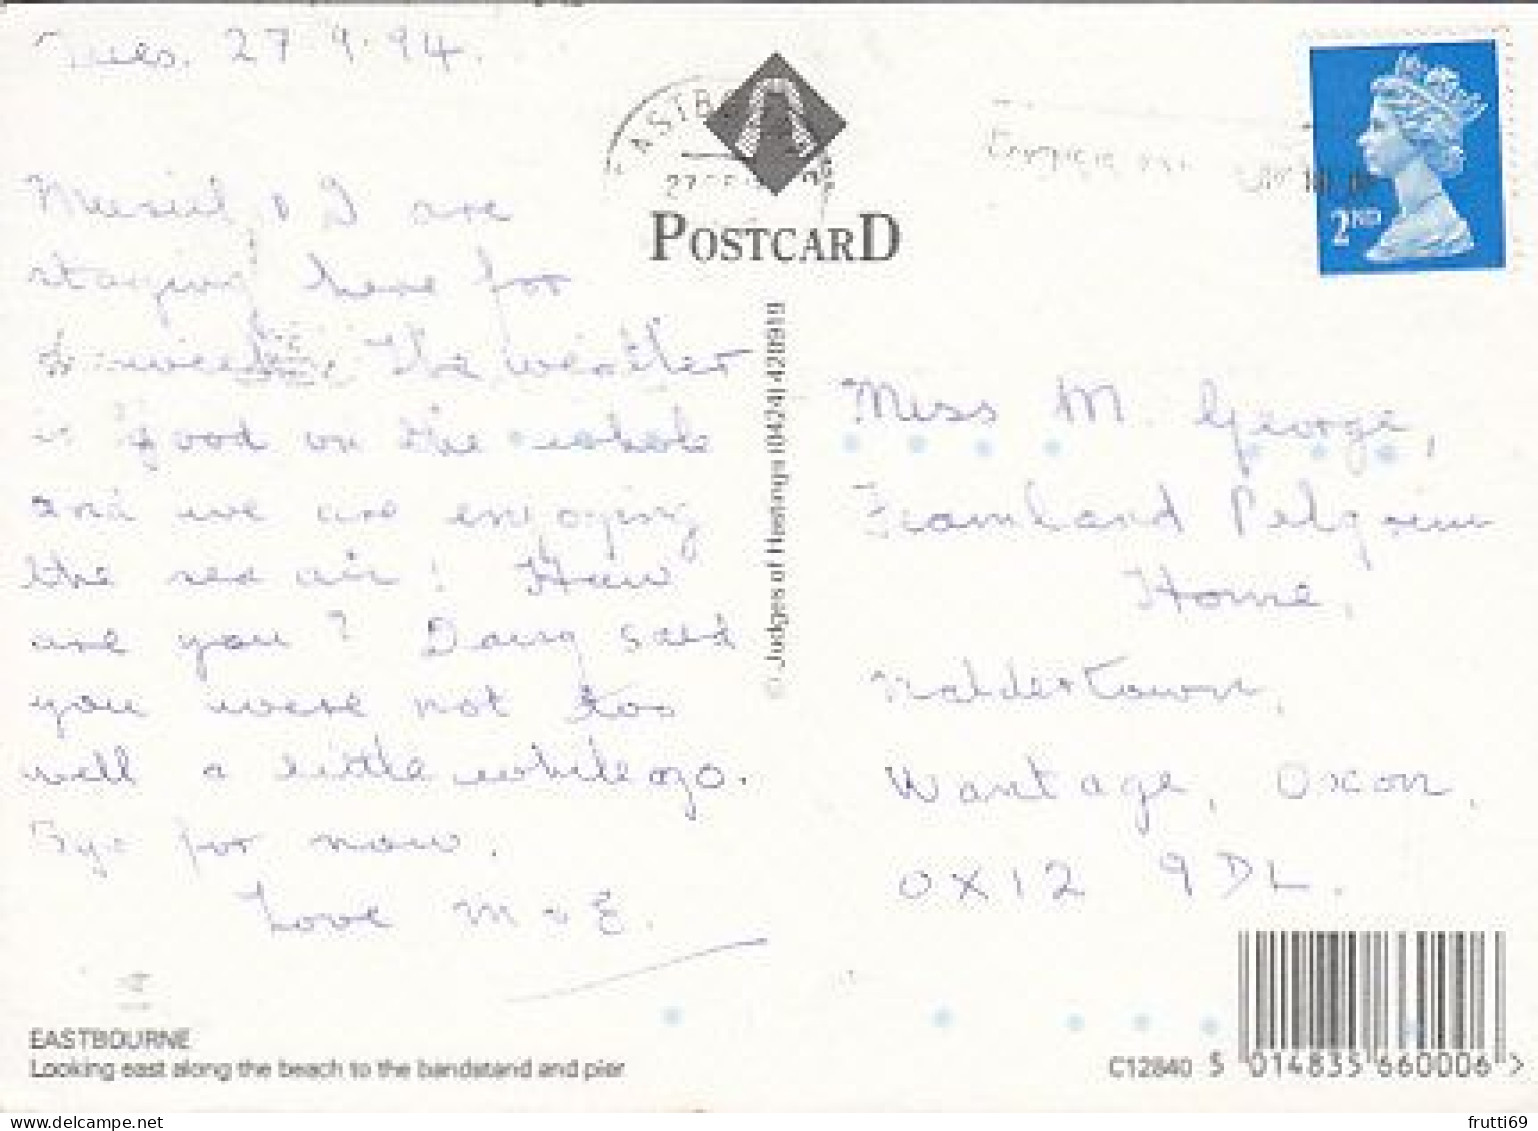 Tues. 27.9.94.
Muriel & I are
staying here for
a week. The weather
is good on the whole
and we are enjoying
the sea air! How
are you? Daisy said
you were not too
well a little while ago.
Bye for now.
Love M & E.
EASTBOURNE
Looking east along the beach to the bandstand and pier
POSTCARD
© Judges of Hastings (0424) 420919
2ND
Miss M. George,
Framland Pilgrim
Home,
Naldertown,
Wantage, Oxon,
OX12 9DL.
C12840 5 014835 660006 >
www.delcampe.net
frutti69